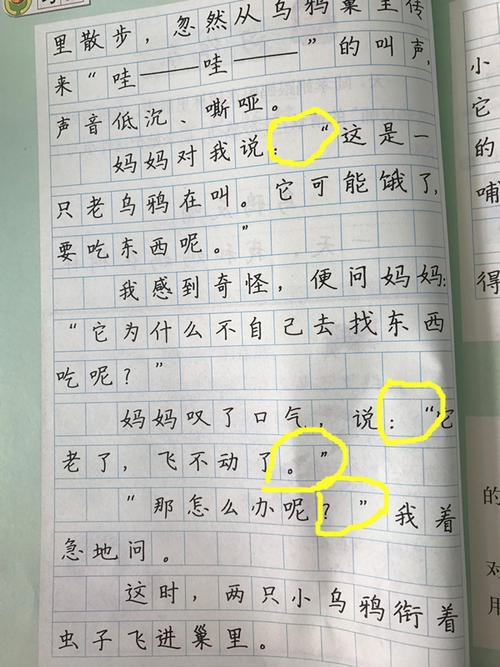 里散步，忽然从乌鸦巢里传
来“哇——哇——”的叫声，
声音低沉、嘶哑。
妈妈对我说：“这是一
只老乌鸦在叫。它可能饿了，
要吃东西呢。”
我感到奇怪，便问妈妈：
“它为什么不自己去找东西
吃呢？”
妈妈叹了口气，说：“它
老了，飞不动了。”
“那怎么办呢？”我着
急地问。
这时，两只小乌鸦衔着
虫子飞进巢里。
小
它
的
哺
得
的
对
用